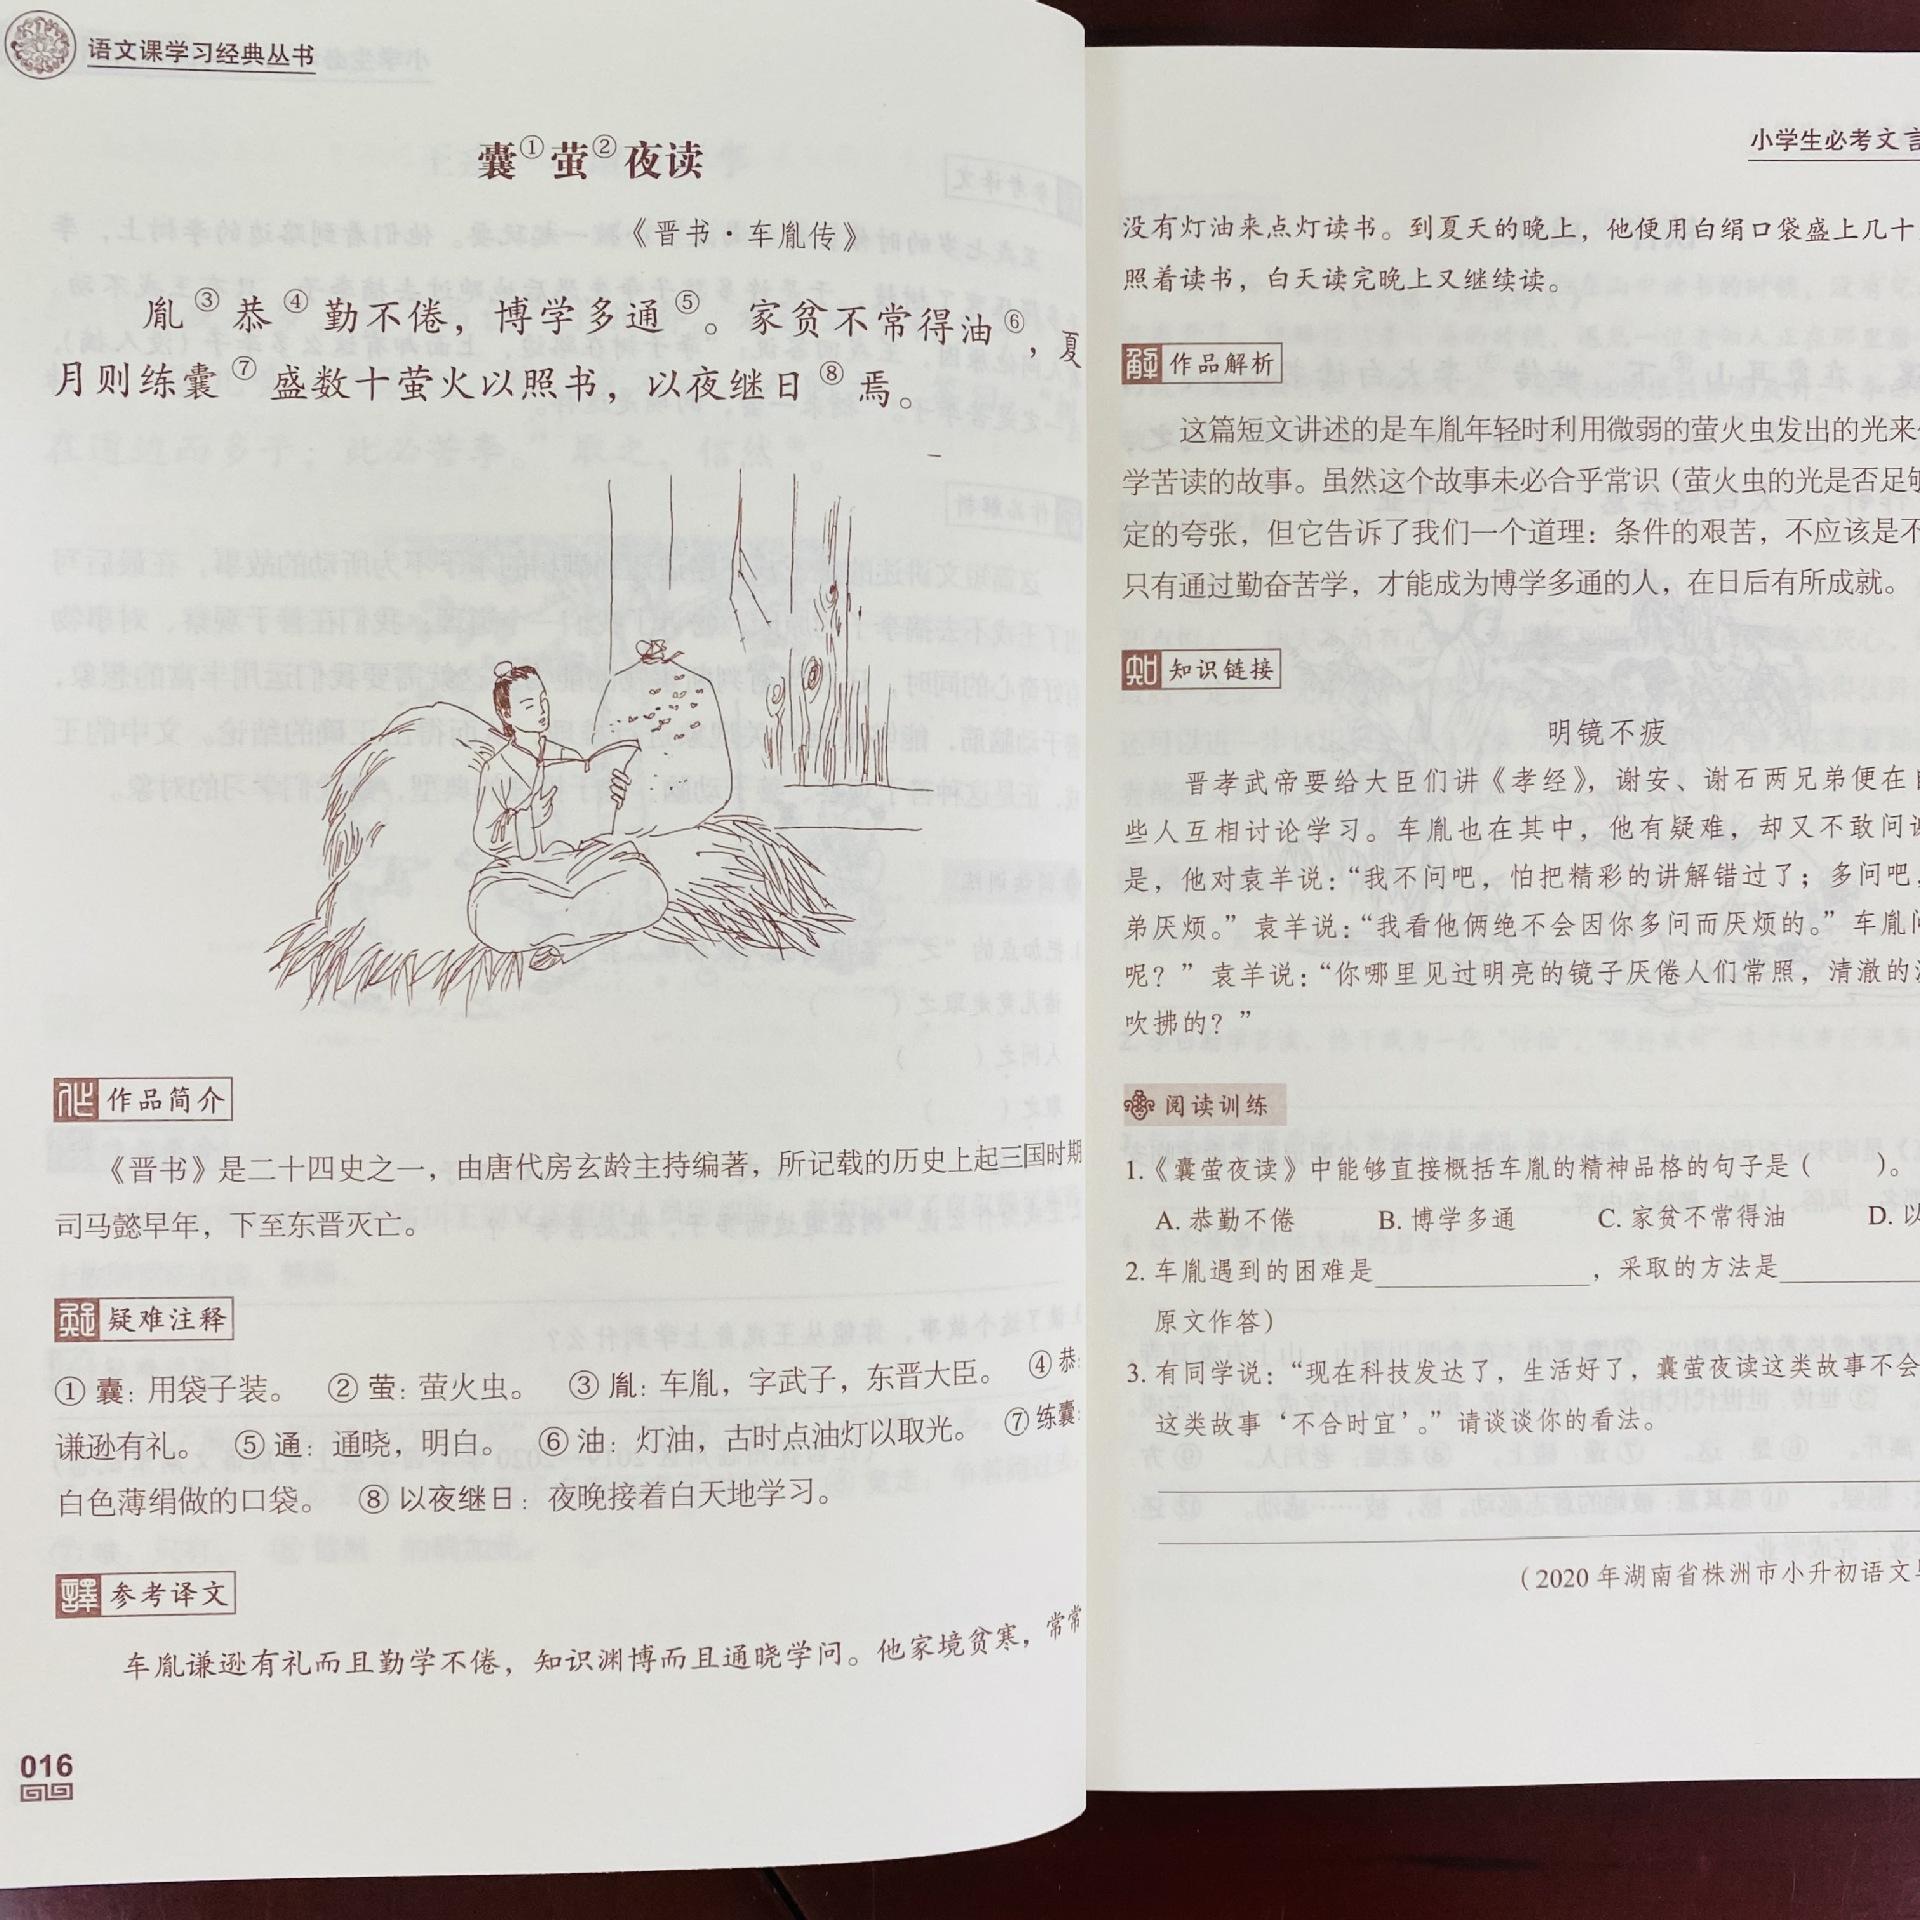 语文课学习经典丛书
囊①萤②夜读
《晋书·车胤传》
胤③恭④勤不倦，博学多通⑤。家贫不常得油⑥，夏
月则练囊⑦盛数十萤火以照书，以夜继日⑧焉。
作品简介
《晋书》是二十四史之一，由唐代房玄龄主持编著，所记载的历史上起三国时期
司马懿早年，下至东晋灭亡。
疑难注释
①囊：用袋子装。 ②萤：萤火虫。 ③胤：车胤，字武子，东晋大臣。 ④恭：
谦逊有礼。 ⑤通：通晓，明白。 ⑥油：灯油，古时点油灯以取光。 ⑦练囊：
白色薄绢做的口袋。 ⑧以夜继日：夜晚接着白天地学习。
参考译文
车胤谦逊有礼而且勤学不倦，知识渊博而且通晓学问。他家境贫寒，常常
016
小学生必考文言
没有灯油来点灯读书。到夏天的晚上，他便用白绢口袋盛上几十
照着读书，白天读完晚上又继续读。
作品解析
这篇短文讲述的是车胤年轻时利用微弱的萤火虫发出的光来
学苦读的故事。虽然这个故事未必合乎常识（萤火虫的光是否足够
定的夸张，但它告诉了我们一个道理：条件的艰苦，不应该是不
只有通过勤奋苦学，才能成为博学多通的人，在日后有所成就。
知识链接
明镜不疲
晋孝武帝要给大臣们讲《孝经》，谢安、谢石两兄弟便在自
些人互相讨论学习。车胤也在其中，他有疑难，却又不敢问谢
是，他对袁羊说：“我不问吧，怕把精彩的讲解错过了；多问吧，
弟厌烦。”袁羊说：“我看他俩绝不会因你多问而厌烦的。”车胤问
呢？”袁羊说：“你哪里见过明亮的镜子厌倦人们常照，清澈的
吹拂的？”
阅读训练
1.《囊萤夜读》中能够直接概括车胤的精神品格的句子是（ ）。
A. 恭勤不倦 B. 博学多通 C. 家贫不常得油 D. 以
2. 车胤遇到的困难是________，采取的方法是________
原文作答）
3. 有同学说：“现在科技发达了，生活好了，囊萤夜读这类故事不会
这类故事‘不合时宜’。”请谈谈你的看法。
（2020年湖南省株洲市小升初语文